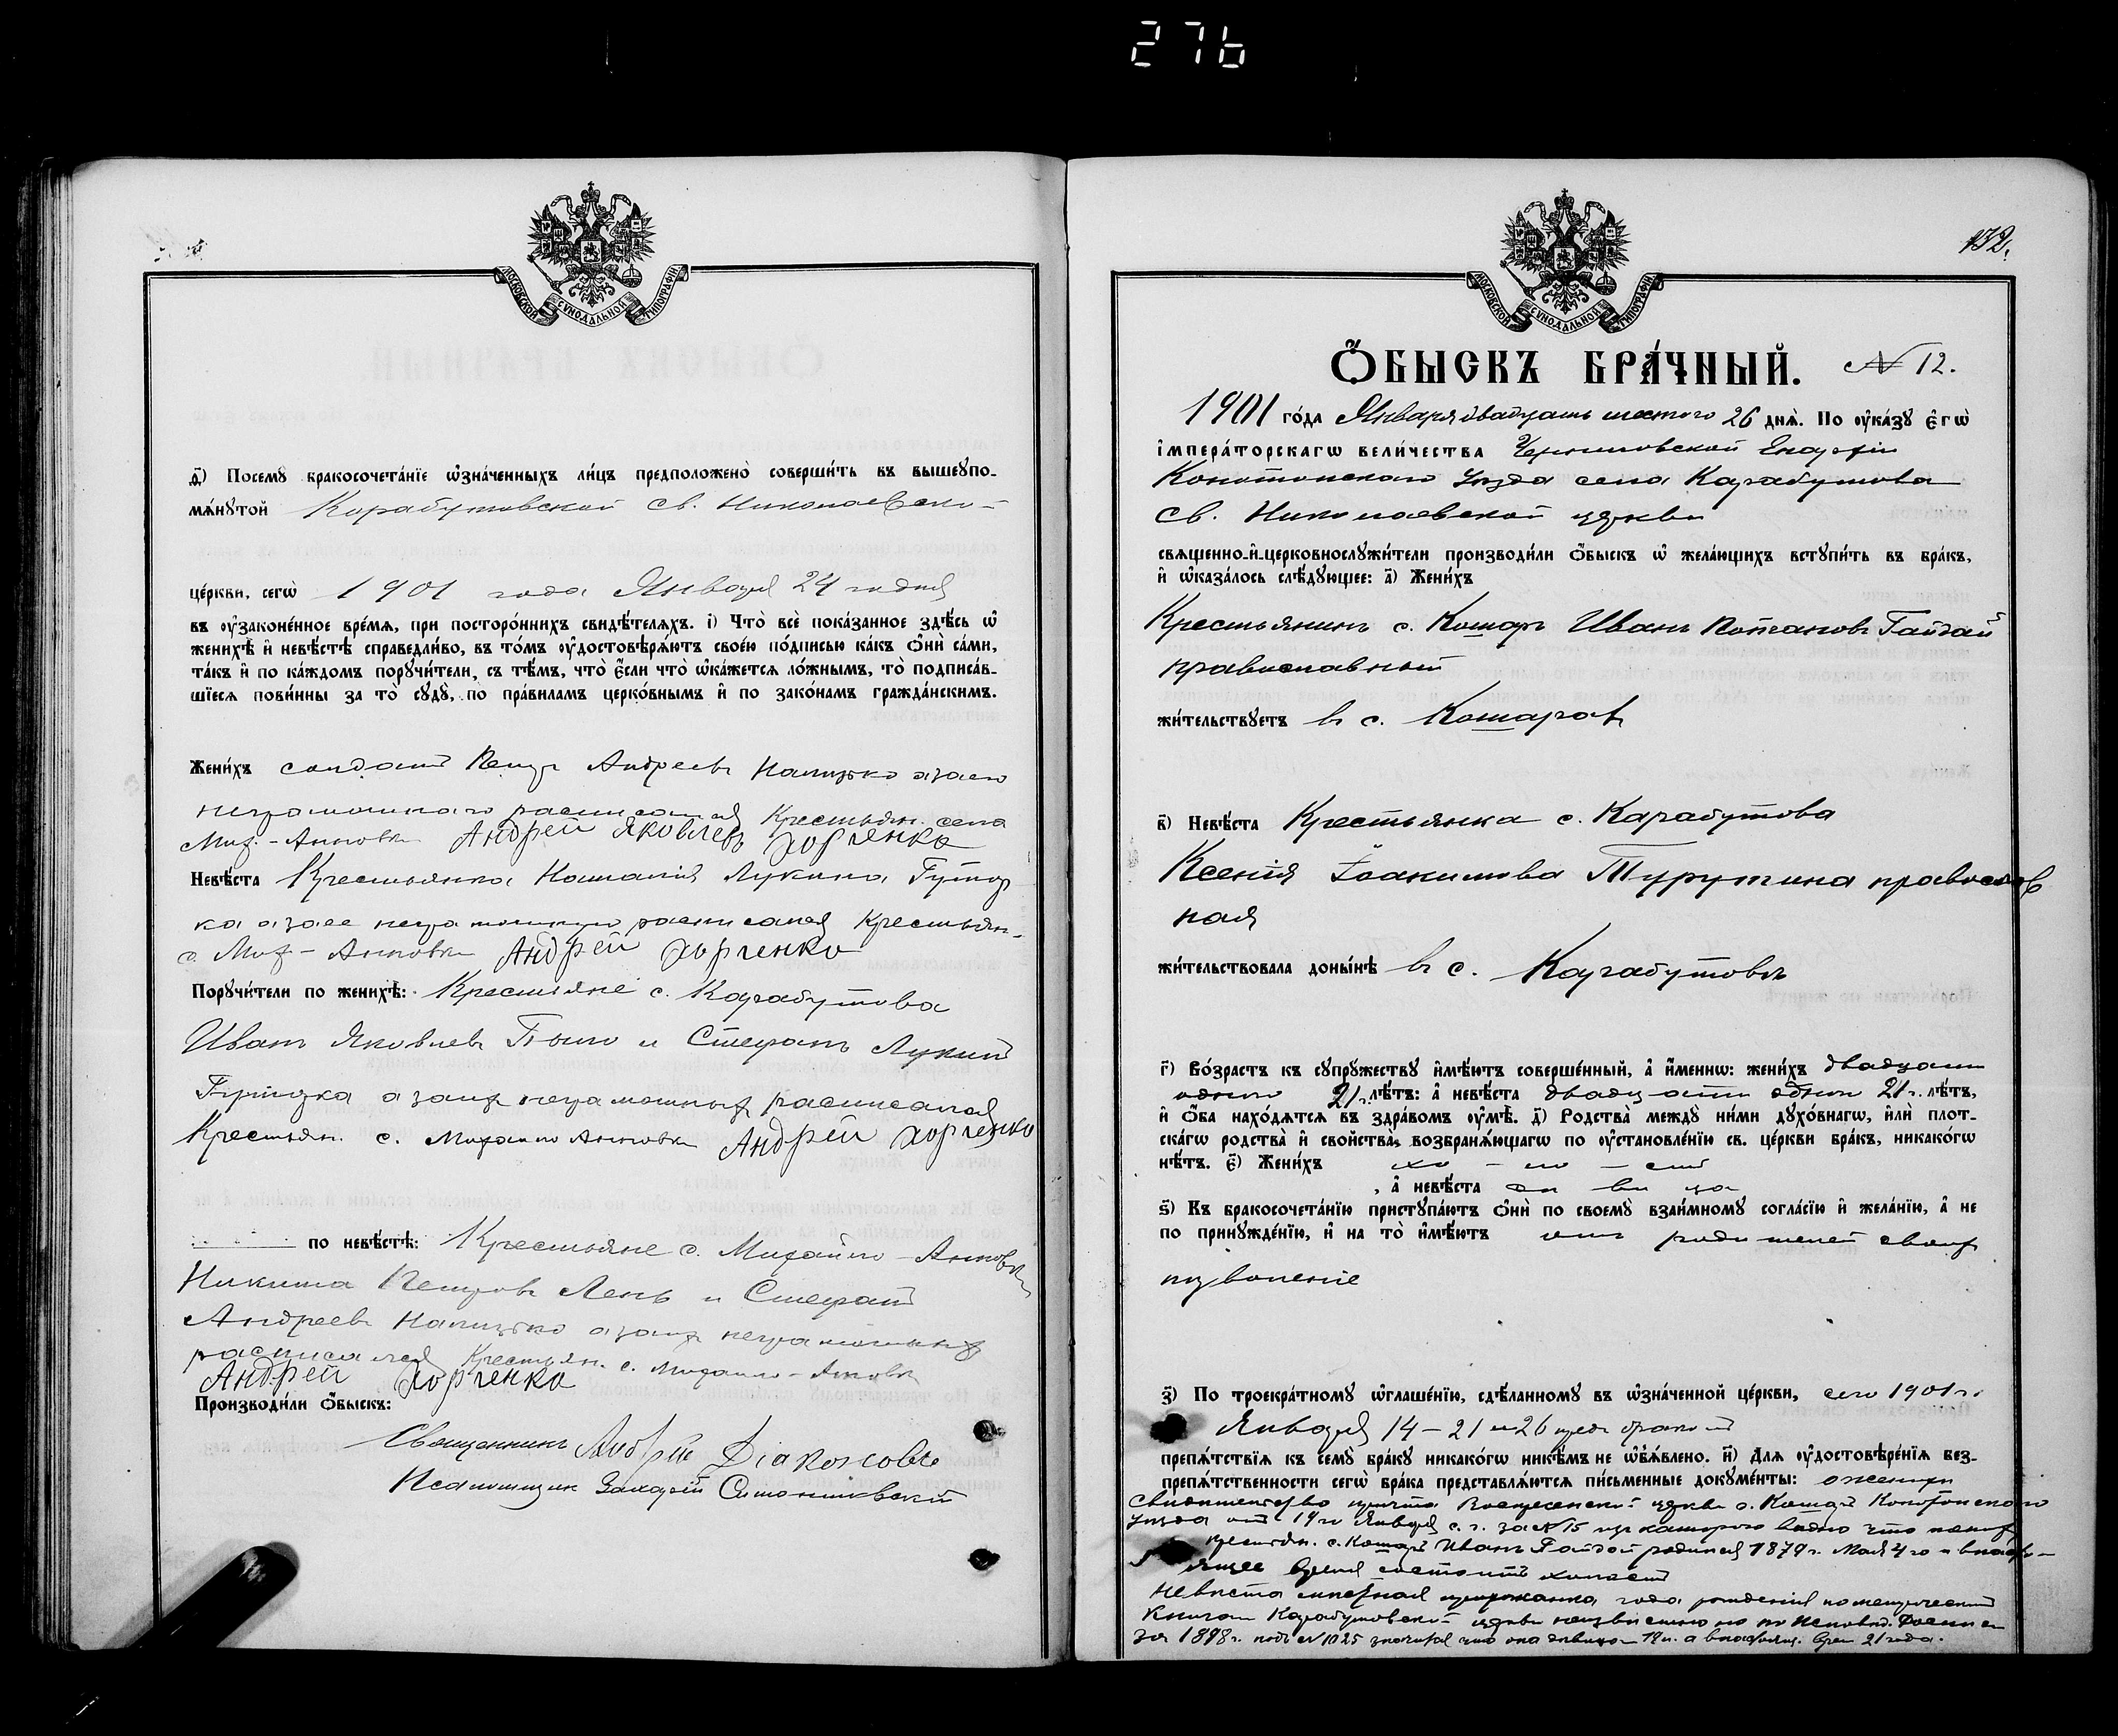 276
МОСКОВСКОЙ СѴНОДАЛЬНОЙ ТИПОГРАФІИ
д҃) Посемꙋ бракосочета́нїе ѡ҆зна́ченныхъ ли́цъ предположено̀ соверши́ть въ вышеꙋпо-
мѧ́нꙋтой Корабутовской Св. Николаевско-
це́ркви, сегѡ̀ 1901 года Января 24 го дня
въ ᲂу҆зако́ненное вре́мѧ, при посторо́ннихъ свидѣ́телѧхъ. і҃) Что̀ всѐ пока́занное здѣ́сь ѡ҆
женихѣ̀ и҆ невѣ́стѣ справедли́во, въ то́мъ ᲂу҆достовѣрѧ́ютъ свое́ю по́дписью ка́къ ѻ҆нѝ са́ми,
та́къ и҆ по ка́ждомъ порꙋчи́тели, съ тѣ́мъ, что̀ є҆́сли что̀ ѡ҆ка́жетсѧ ло́жнымъ, то̀ подписа́в-
шїесѧ пови́нны за то̀ сꙋдꙋ̀, по пра́виламъ церко́внымъ и҆ по зако́намъ гражда́нскимъ.
Жени́хъ солдатъ Петръ Андреевъ а за него
неграмотнаго расписался Крестьян. села
Мих.-Анновки Андрей Яковлевъ Хорченко
Невѣ́ста Крестьянка Наталія Лукина
ка а за нее неграмотную расписался Крестьян.
с. Мих-Анновки Андрей Хорченко
Порꙋчи́тели по женихѣ̀: Крестьяне с. Карабутова
Иванъ Яковлевъ и Стефанъ Лукинъ
а за ихъ неграмотныхъ расписался
Крестьян. с. Михайло Анновки Андрей Хорченко
по невѣ́стѣ: Крестьяне с. Михайло-Анновки
Никита Петровъ Лень и Стефанъ
Андреевъ а за ихъ неграмотныхъ
расписался Крестьян. с. Михайло-Анновки
Андрей Хорченко
Производи́ли ѻ҆́быскъ:
Священникъ Андрей Діаконовъ
Псаломщик Захарій
132.
МОСКОВСКОЙ СѴНОДАЛЬНОЙ ТИПОГРАФІИ
Ѻ҆́БЫСКЪ БРА́ЧНЫЙ. № 12.
1901 го́да Января двадцать шестого 26 днѧ̀. По ᲂу҆ка́зꙋ Є҆гѡ̀
і҆мпера́торскагѡ вели́чества Черниговской Епархіи
Конотопскаго Уезда села Карабутова
Св. Николаевской церкви
свѧщенно-и҆-церковнослꙋжи́тели производи́ли ѻ҆́быскъ ѡ҆ жела́ющихъ встꙋпи́ть въ бра́къ,
и҆ ѡ҆каза́лось слѣ́дꙋющее: а҃) Жени́хъ
Крестьянинъ с. Кошаръ Иванъ Потаповъ Гайдай
православный
жи́тельствꙋетъ въ с. Кошарахъ
в҃) Невѣ́ста Крестьянка с. Карабутова
Ксенія Іоакимова Турутина православ
ная
жи́тельствовала доны́нѣ въ с. Карабутовѣ
г҃) Во́зрастъ къ сꙋпрꙋ́жествꙋ и҆мѣ́ютъ соверше́нный, а҆ и҆́меннѡ: жени́хъ двадцати
одного 21 г. лѣ́тъ: а҆ невѣ́ста двадцати одного 21 г. лѣ́тъ,
и҆ ѻ҆́ба нахо́дѧтсѧ въ здра́вомъ ᲂу҆мѣ̀. д҃) Родства̀ междꙋ̀ ни́ми дꙋхо́внагѡ, и҆лѝ плот-
ска́гѡ родства̀ и҆ свойства̀, возбранѧ́ющагѡ по ᲂу҆становле́нїю св. це́ркви бра́къ, никако́гѡ
нѣ́тъ. є҃) Жени́хъ хо - ло - стъ
, а҆ невѣ́ста дѣ ви ца
ѕ҃) Къ бракосочета́нїю пристꙋпа́ютъ ѻ҆нѝ по своемꙋ̀ взаи́мномꙋ согла́сїю и҆ жела́нїю, а҆ не
по принꙋжде́нїю, и҆ на то̀ и҆мѣ́ютъ отъ родителей своихъ
позволеніе
з҃) По троекра́тномꙋ ѡ҆глаше́нїю, сдѣ́ланномꙋ въ ѡ҆зна́ченной це́ркви, сего 1901 г.
Января 14 - 21 и 26
препѧ́тствїѧ къ семꙋ̀ бра́кꙋ никако́гѡ никѣ́мъ не ѡ҆б̾ѧ́влено. и҃) Для ᲂу҆достовѣре́нїѧ без-
препѧ́тственности сегѡ̀ бра́ка представлѧ́ютсѧ пи́сьменные докꙋме́нты: о женихѣ
Свидѣтельство причта Воскресенской церкви с. Кошаръ Конотопскаго
уезда отъ 19 го Января с. г. за № 15 изъ котораго видно что
крестьян. с. Кошаръ Иванъ Гайдай родился 1879 г. Мая 4 го и въ насто-
ящее время состоитъ холостъ
Невѣста мѣстная прихожанка года рожденія по метрическимъ
Книгам Карабутовской церкви неизвѣстно но по Исповѣд. Росписи
за 1898 г. подъ № 1025 значится что она 19 л. а въ настоящ. врем 21 года.